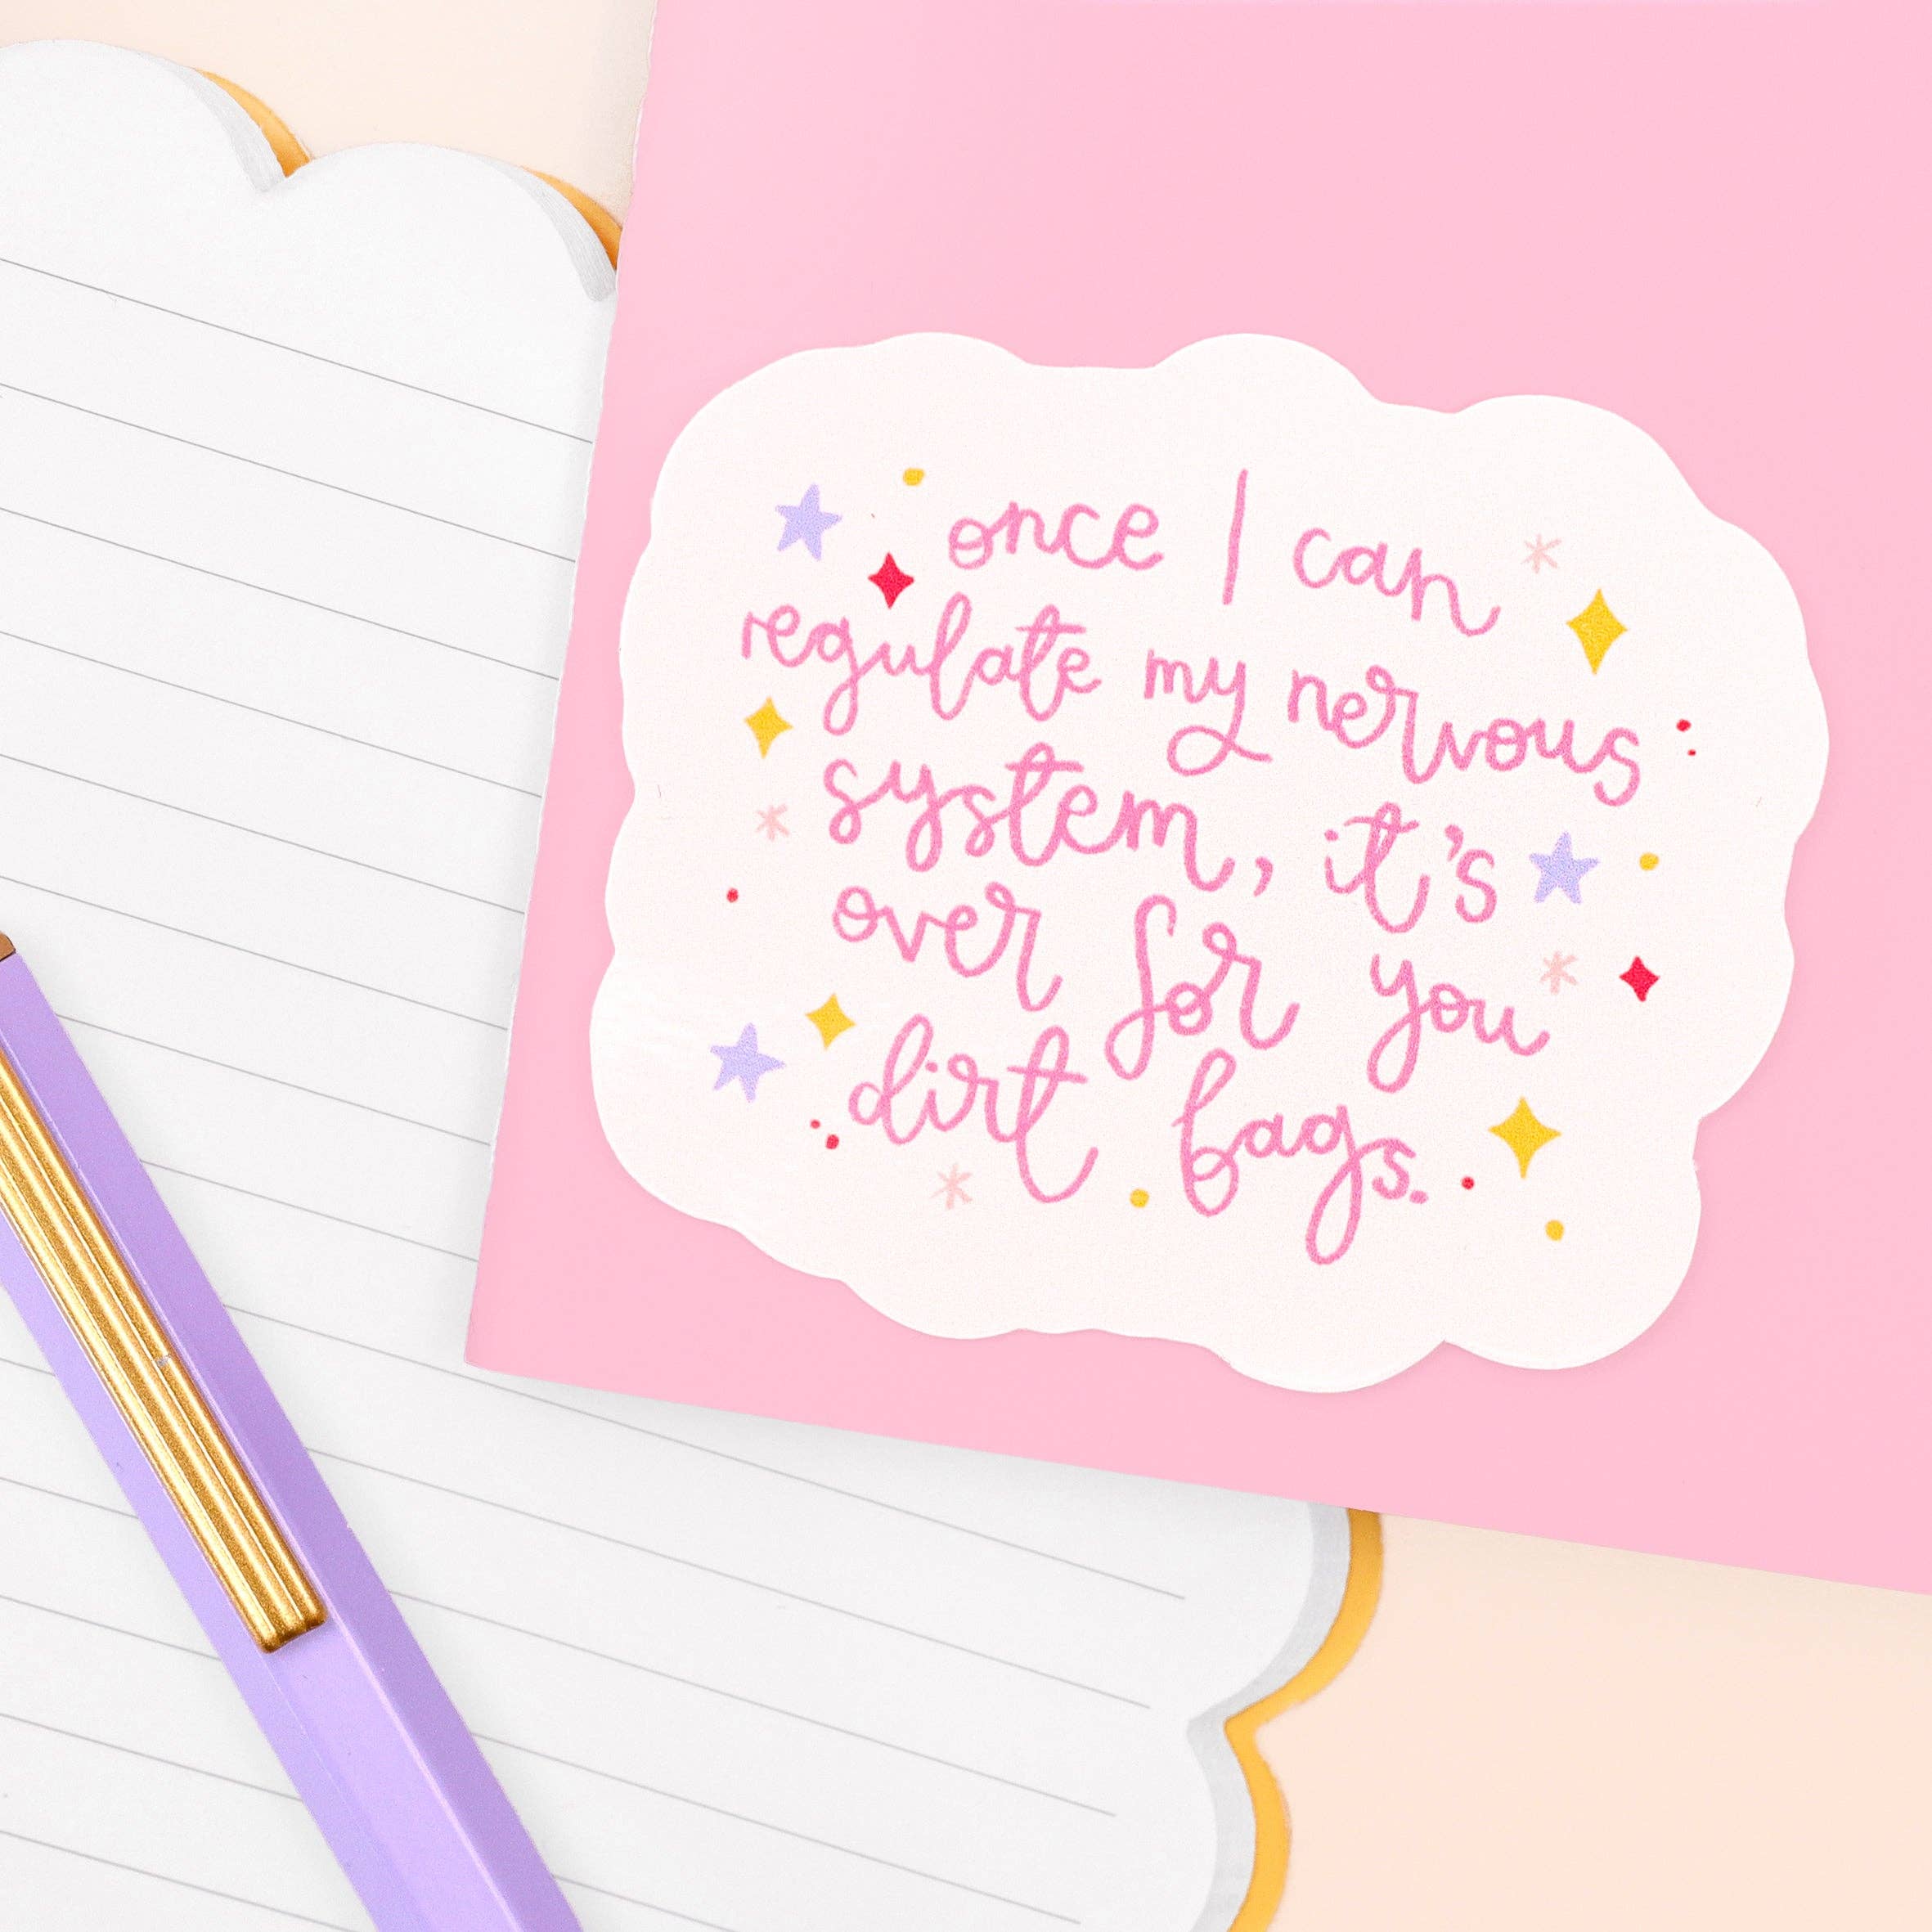 once I can
regulate my nervous
system, it's
over for you
dirt bags.